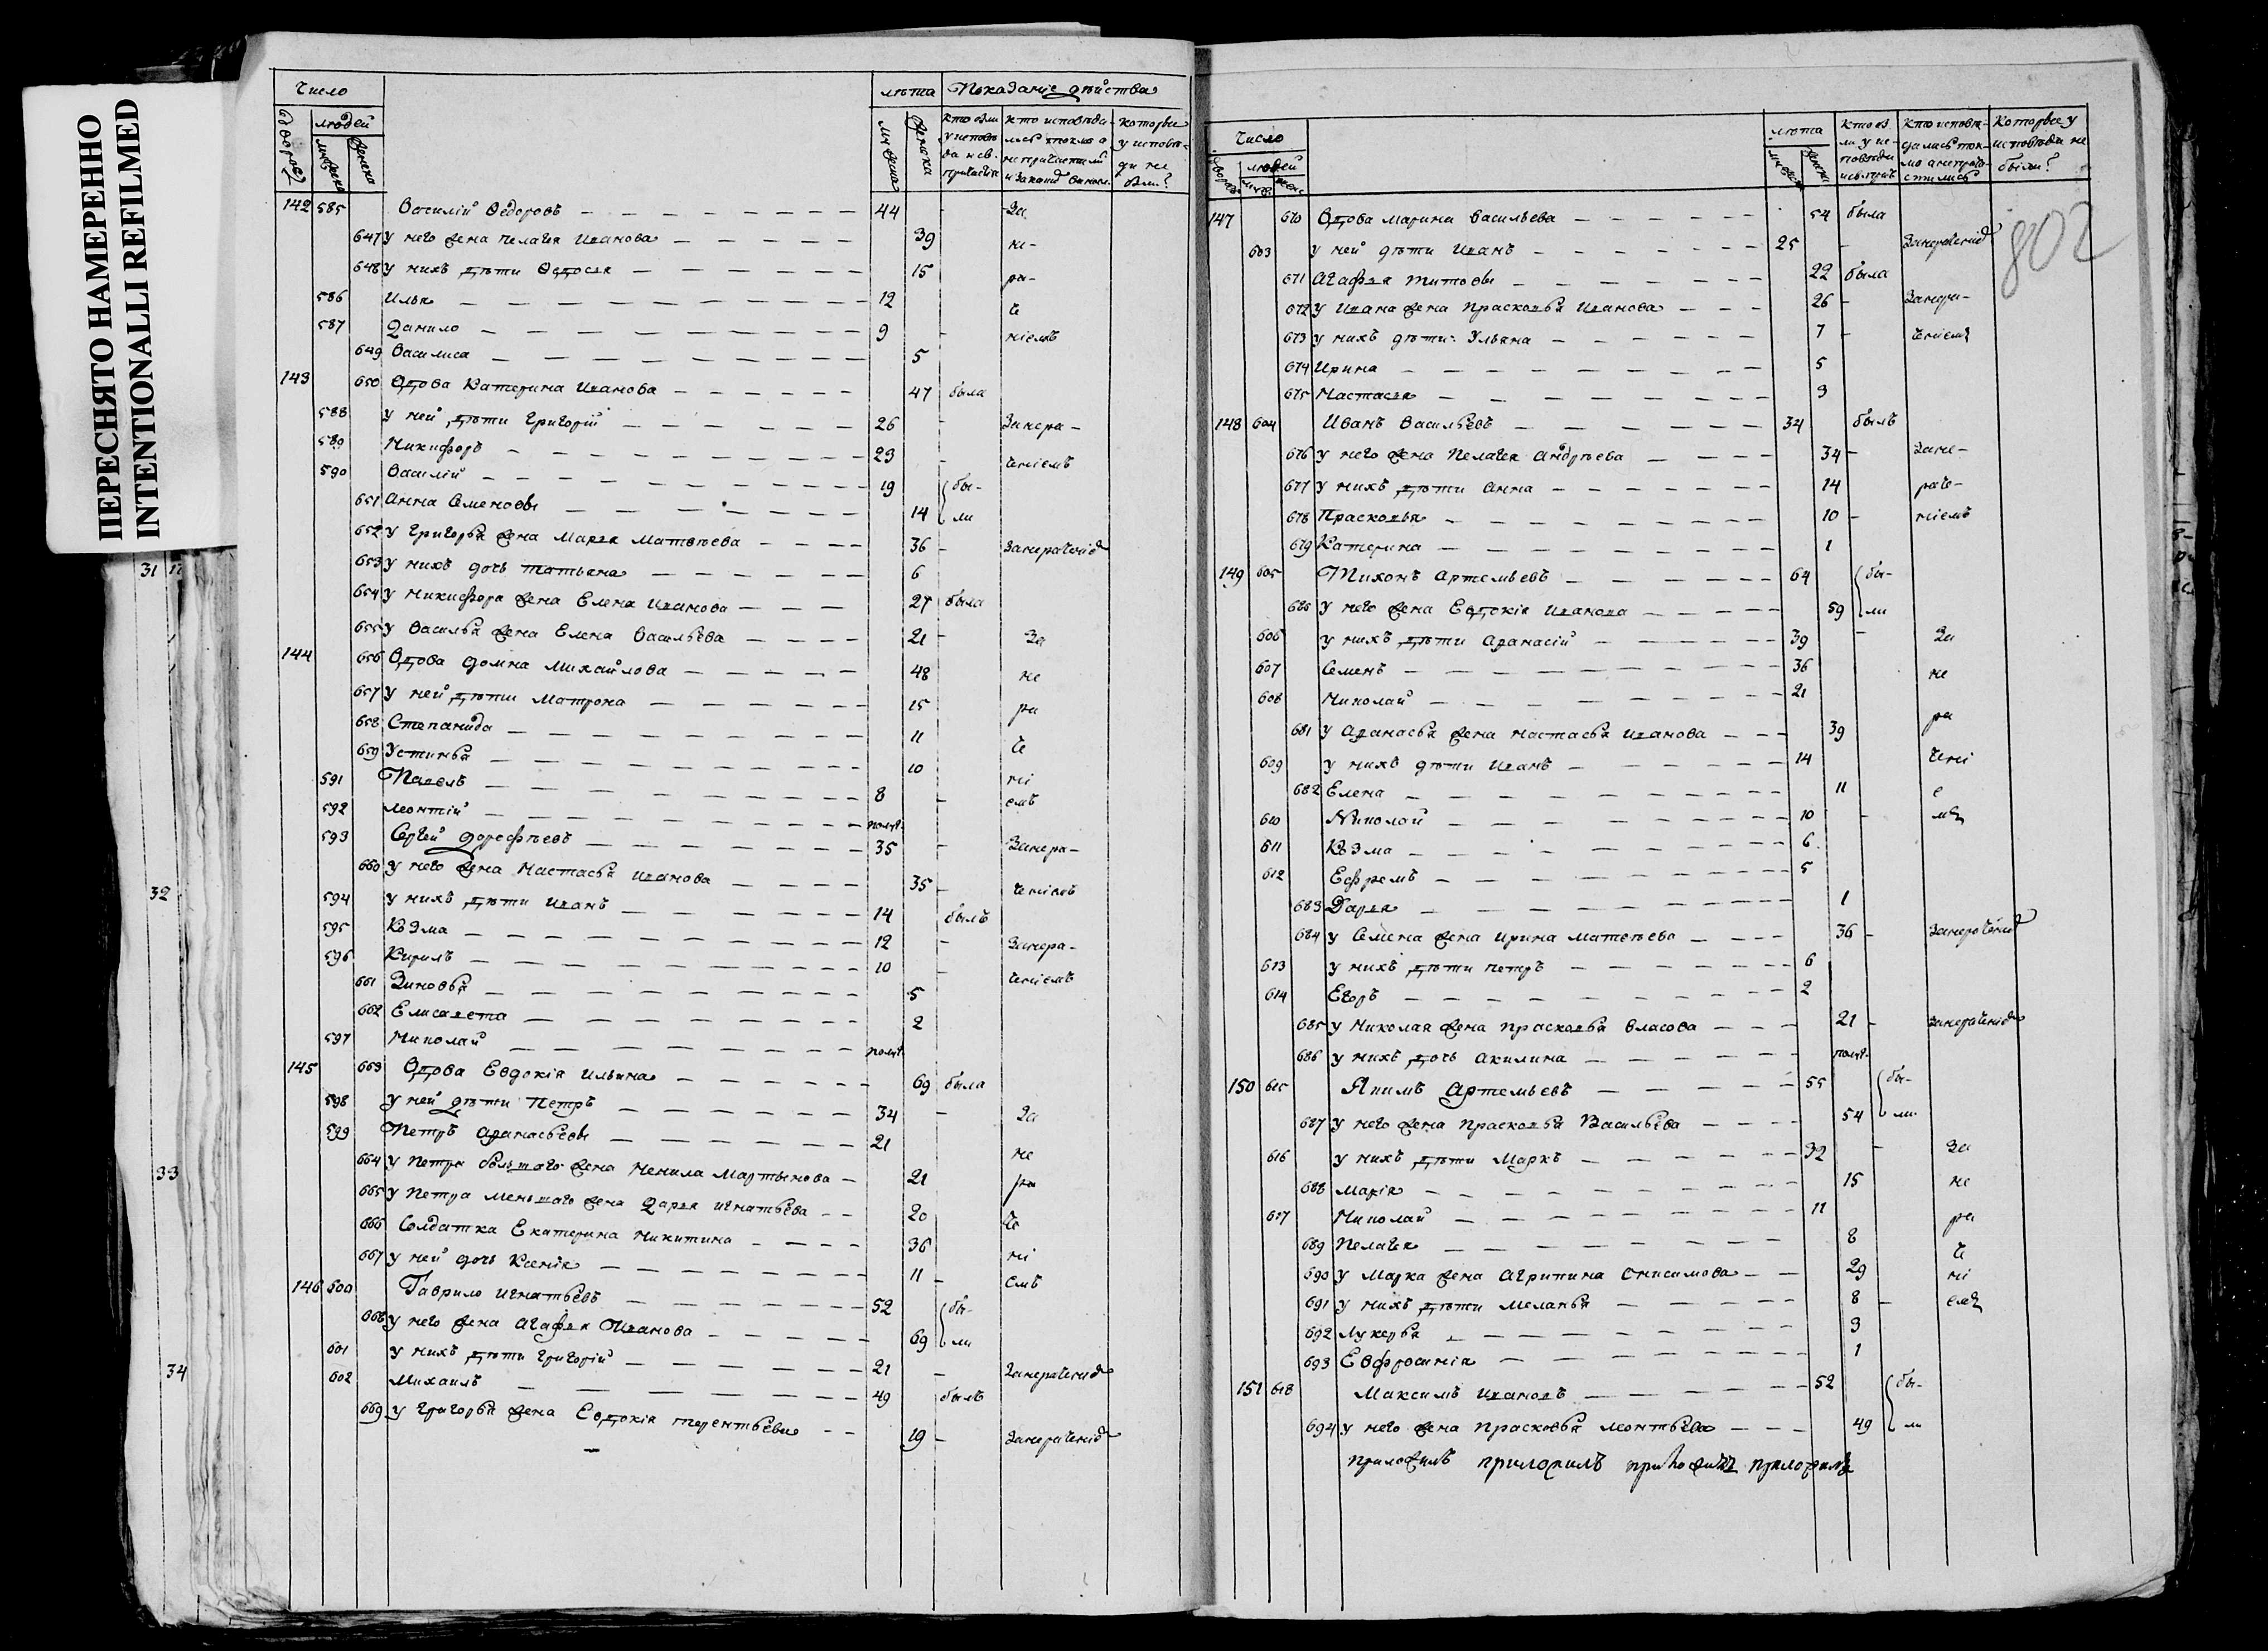 ПЕРЕСНЯТО НАМЕРЕННО
INTENTIONALLI REFILMED
31
32
33
34
Число лѣта Показаніе дѣйства
дворовъ людей
мужеска женска мужеска женска
кто были у исповѣди и св. причастія
кто исповѣдались токмо а не причастились и за какимъ винословіемъ
которые у исповѣди не были?
142 585 Василій Ѳедоровъ 44 - За
647 у него жена Пелагея Иванова 39 не-
648 у нихъ дѣти Ѳедосея 15 ра-
586 Илья 12 че
587 Данило 9 - ніемъ
649 Василиса 5
143 650 Вдова Катерина Иванова 47 была
588 у ней дѣти Григорій 26 - Занера-
589 Никифоръ 23 - ченіемъ
590 Василій 19 бы-
651 Анна Семеновы 14 ли
652 у Григорья жена Марея Матвѣева 36 - занераченіемъ
653 у нихъ дочь Татьяна 6
654 у Никифора жена Елена Иванова 27 была
655 у Василья жена Елена Васильева 21 - За
144 656 Вдова Домна Михайлова 48 не
657 у ней дѣти Матрона 15 ра
658 Степанида 11 че
659 Устинья 10 ні
591 Павелъ 8 - емъ
592 Леонтій полуг.
593 Сергей Дорофѣевъ 35 - Занера-
660 у него жена Настасья Иванова 35 - ченіемъ
594 у нихъ дѣти Иванъ 14 былъ
595 Козма 12 - Занера-
596 Кирилъ 10 - ченіемъ
661 Зиновья 5
662 Елисавета 2
597 Николай полуг.
145 663 Вдова Евдокія Ильина 69 была
598 у ней дѣти Петръ 34 - За
599 Петръ Афанасьевы 21 не
664 у Петра большаго жена Ненила Мартынова 21 ра
665 у Петра меньшаго жена Дарея Игнатьева 20 че
666 Солдатка Екатерина Никитина 36 ні
667 у ней дочь Ксенія 11 - емъ
146 600 Гаврило Игнатьевъ 52 бы-
668 у него жена Агафея Иванова 69 ли
601 у нихъ дѣти Григорій 21 - Занераченіемъ
602 Михаилъ 49 былъ
669 у Григорья жена Евдокія Терентьева 19 - Занераченіемъ
Число лѣта
дворовъ людей
муж. женс. мужеска женска
кто были у исповѣди и св. прич.
кто исповѣдались токмо а не причастились
Которые у исповѣди не были?
802
147 670 Вдова Марина Васильева 54 была
603 у ней дѣти Иванъ 25 - Занераченіемъ
671 Агафея Титовы 22 была
672 у Ивана жена Прасковья Иванова 26 - Занера-
673 у нихъ дѣти: Ульяна 7 - ченіемъ
674 Ирина 5
675 Настасея 3
148 604 Иванъ Васильевъ 34 былъ
676 у него жена Пелагея Андрѣева 34 - Зане-
677 у нихъ дѣти Анна 14 раче-
678 Прасковья 10 - ніемъ
679 Катерина 1
149 605 Тихонъ Артемьевъ 64 бы-
680 у него жена Евдокія Иванова 59 ли
606 у нихъ дѣти Афанасій 39 - За
607 Семенъ 36 не
608 Николай 21
681 у Афанасья жена Настасья Иванова 39 ра
609 у нихъ дѣти Иванъ 14 чені
682 Елена 11 е
610 Николай 10 - мъ
611 Козма 6
612 Ефремъ 5
683 Дарея 1
684 у Семена жена Ирина Матвѣева 36 - Занераченіемъ
613 у нихъ дѣти Петръ 6
614 Егоръ 2
685 у Николая жена Прасковья Власова 21 - Занераченіемъ
686 у нихъ дочь Акилина полуг.
150 615 Якимъ Артемьевъ 55 бы-
687 у него жена Прасковья Васильева 54 ли
616 у нихъ дѣти Маркъ 32 - За
688 Марія 15 не
617 Николай 11 ра
689 Пелагея 8 че
690 у Марка жена Агрипина Онисимова 29 ні
691 у нихъ дѣти Меланья 8 - емъ
692 Лукерья 3
693 Евфросинія 1
151 618 Максимъ Ивановъ 52 бы-
694 у него жена Прасковья Леонтьева 49 ли
приложилъ приложилъ приложилъ приложилъ